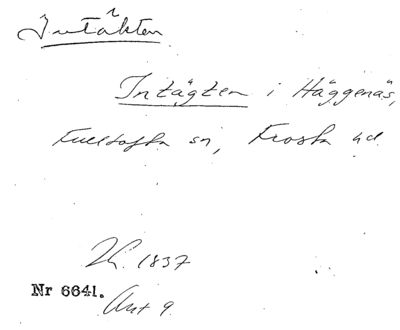 Intäkten
Intägten i Häggenäs,
Fulltofta sn, Frosta hd.
1837
Nr 6641.
Akt 9.